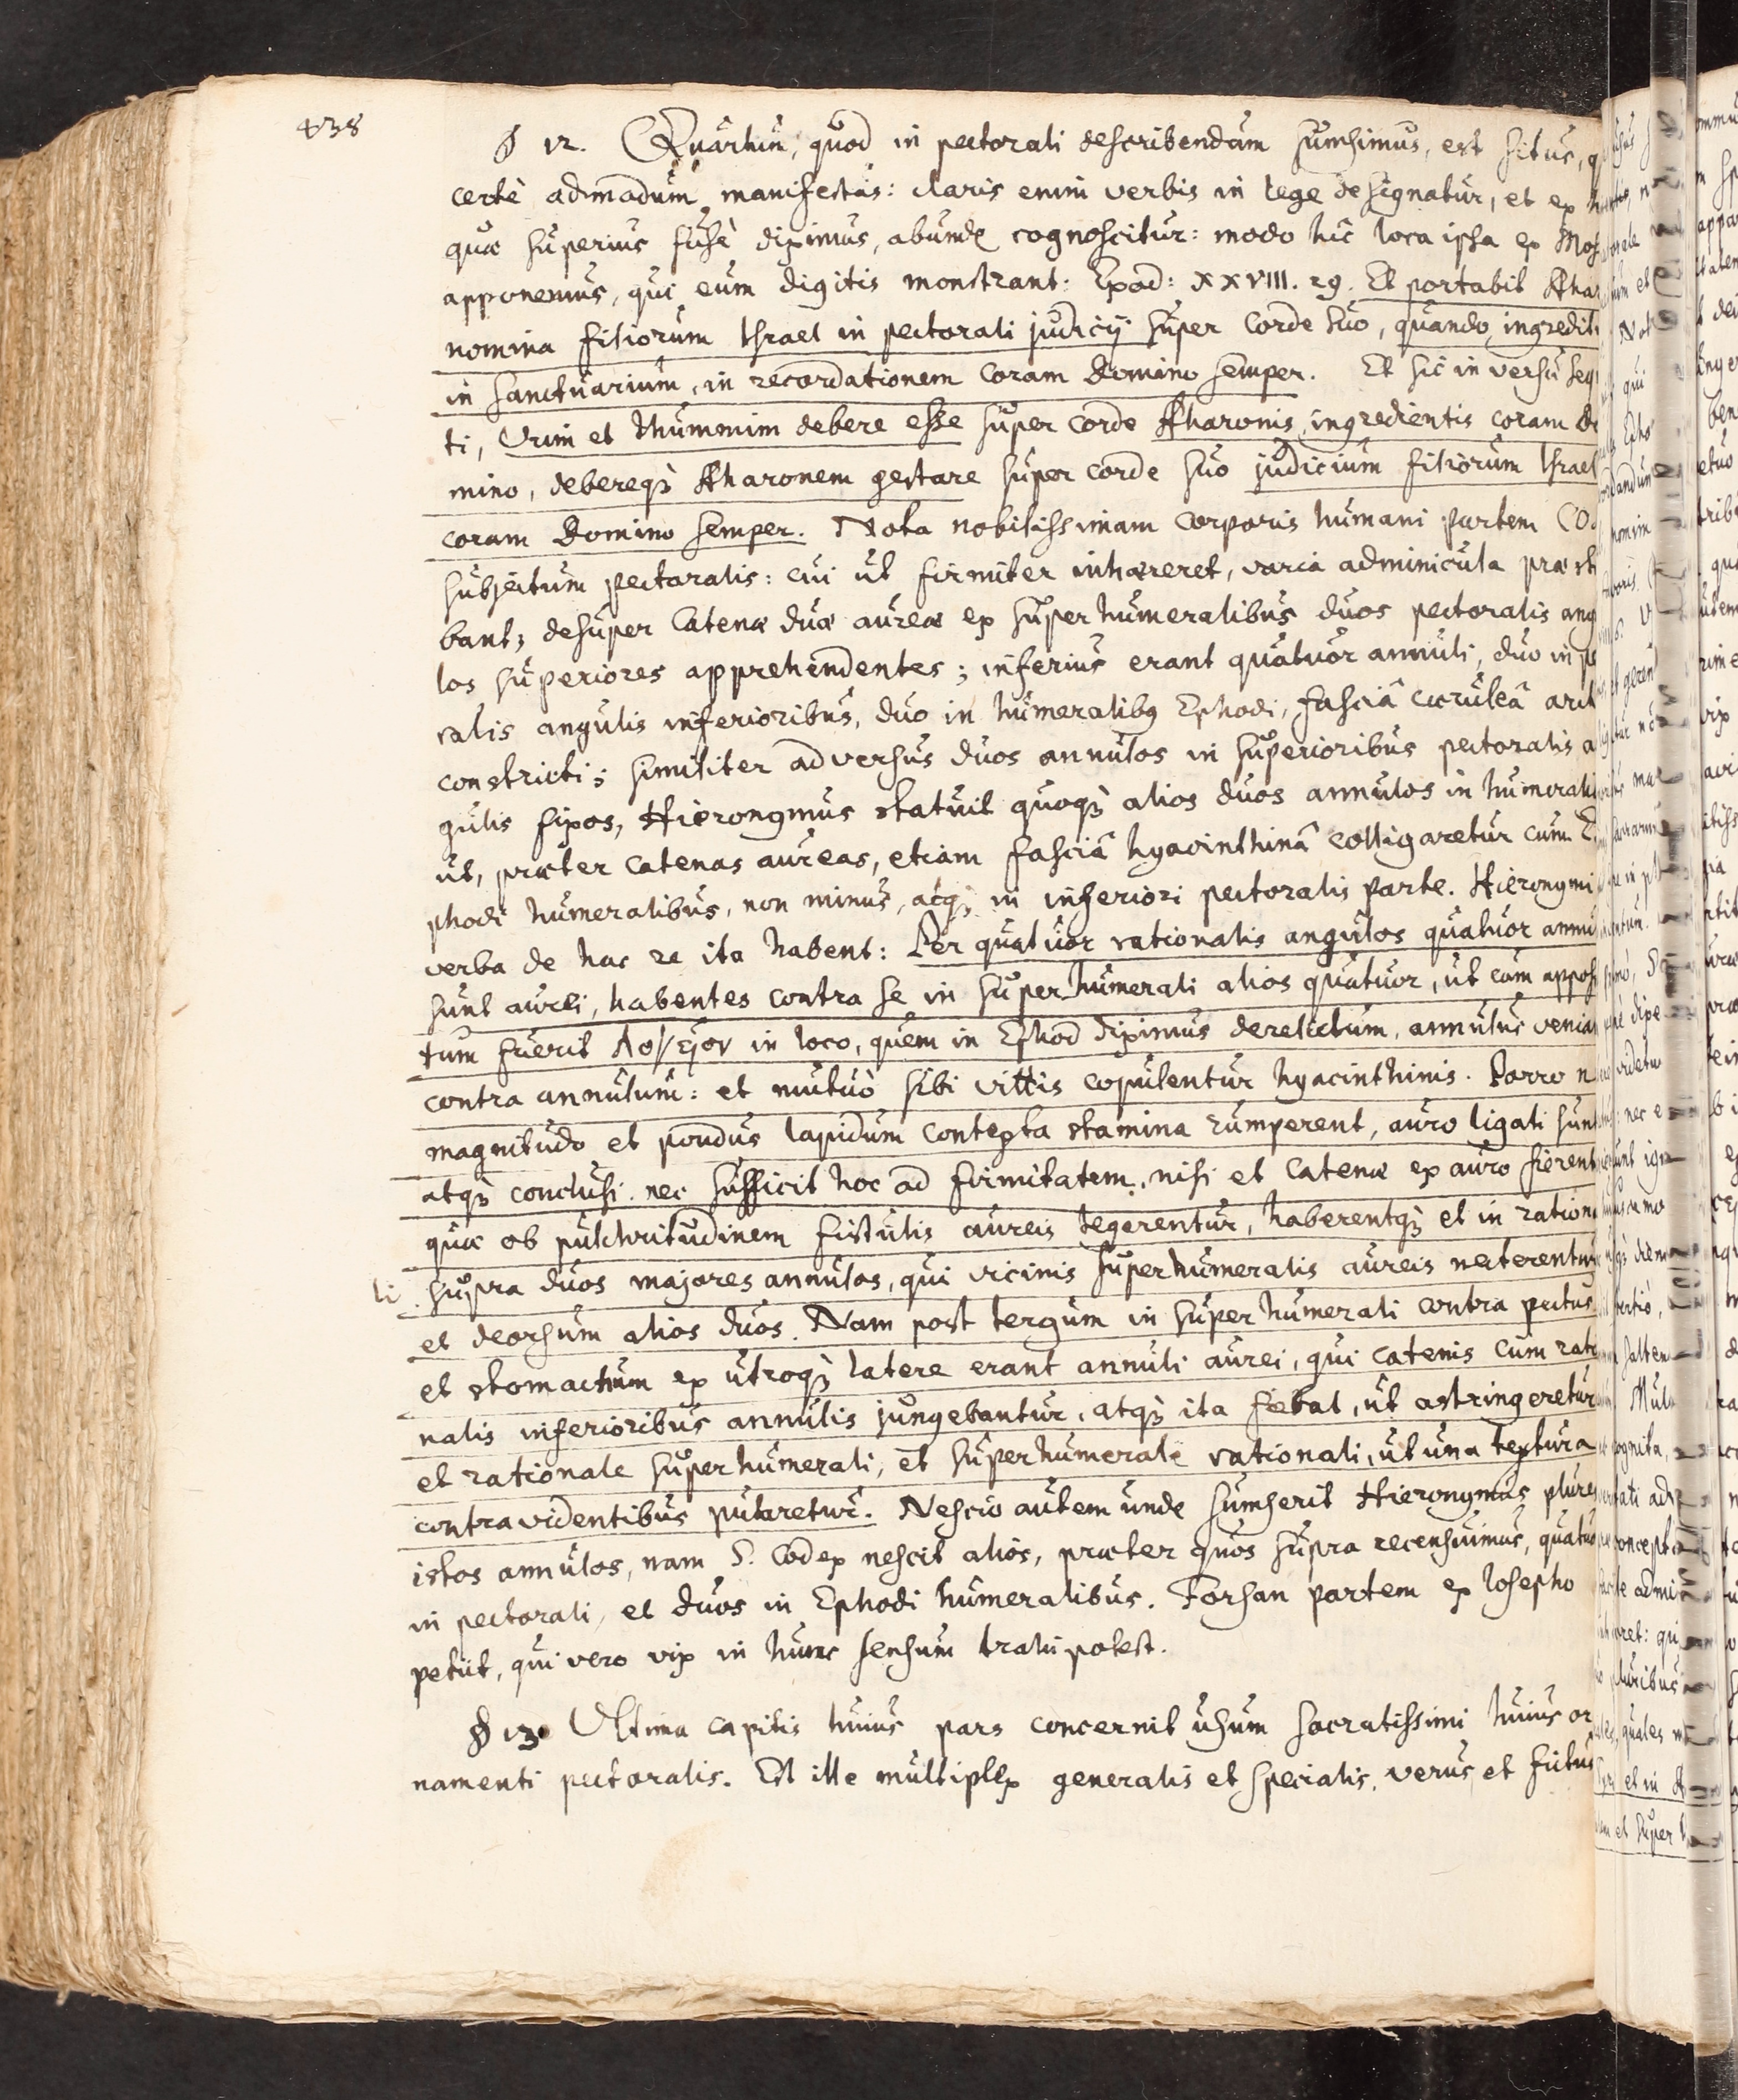 438
§ 12. Quartum, quod in pectorali describendum sumsimus, est situs, q
certè admodum manifestus: claris enim verbis in lege designatur, et ex
quæ superius fusè diximus, abunde cognoscitur: modo hic loca ipsa ex Mos
apponemus, qui eum digitis monstrant: Exod: XXVIII. 29. Et portabit Ahar
nomina filiorum Israel in pectorali judicij super corde suo, quando ingredit
in sanctuarium, in recordationem coram Domino semper. Et sic in versu seq
ti, Urim et Thummim debere esse super corde Aharonis, ingredientis coram Do
mino, debereqꝫ Aharonem gestare super corde suo judicium filiorum Israel
coram Domino semper. Nota nobilissimam corporis humani partem CO
subjectum pectoralis: cui ut firmiter inhæreret, varia adminicula præst
bant; desuper catenæ duæ aureæ ex superhumeralibus duos pectoralis ang
los superiores apprehendentes; inferius erant quatuor annuli, duo in pe
ralis angulis inferioribus, duo in humeralibꝫ Ephodi, fasciâ cæruleâ arct
constricti; similiter adversus duos annulos in superioribus pectoralis a
gulis fixos, Hieronymus statuit quoqꝫ alios duos annulos in humerali
ut, præter catenas aureas, etiam fasciâ hyacinthinâ colligaretur cum E
phodi humeralibus, non minus, atqꝫ in inferiori pectoralis parte. Hieronymi
verba de hac re ita habent: Per quatuor rationalis angulos quatuor annu
sunt aurei, habentes contra se in superhumerali alios quatuor, ut cum appos
tum fuerit λογεῖον in loco, quem in Ephod diximus derelictum, annulus venia
contra annulum: et mutuò sibi vittis copulentur hyacinthinis. Porro n
magnitudo et pondus lapidum contexta stamina rumperent, auro ligati sunt
atqꝫ conclusi. nec sufficit hoc ad firmitatem, nisi et catenæ ex auro fierent
quæ ob pulchritudinem fistulis aureis tegerentur, haberentqꝫ et in rationa
li supra duos majores annulos, qui vicinis superhumeralis aureis necterentur
et deorsum alios duos. Nam post tergum in superhumerali contra pectus
et stomachum ex utroqꝫ latere erant annuli aurei, qui catenis cum ratio
nalis inferioribus annulis jungebantur, atqꝫ ita fiebat, ut astringeretur
et rationale superhumerali, et superhumerale rationali, ut una textura
contra videntibus putaretur. Nescio autem unde sumserit Hieronymus plures
istos annulos, nam S. Codex nescit alios, præter quos supra recensuimus, quatuo
in pectorali, et duos in Ephodi humeralibus. Forsan partem ex Josepho
petiit, qui vero vix in hunc sensum trahi potest.
§ 13. Ultima capitis huius pars concernit usum sacratissimi huius or
namenti pectoralis. Est ille multiplex generalis et specialis, verus et fictus